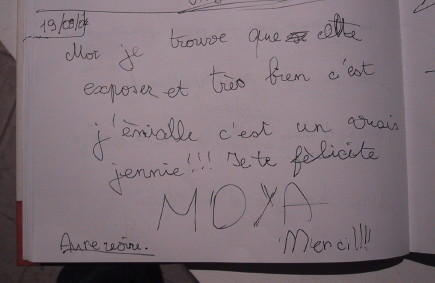 19/08/0
Moi je trouve que cette
exposer et très bien c'est
j'émialle c'est un vrais
jennie!!! Je te fèlicite
MOYA
Aurevoire. Merci!!!